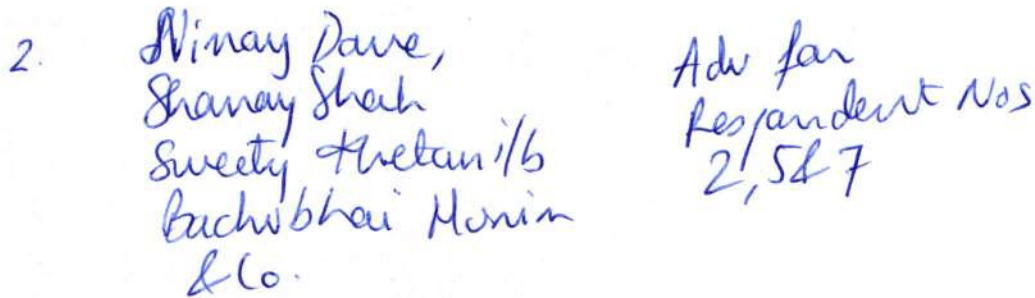 2.
Ninay Dave,
Shanay Shah
Sweety Thetani i/b
Bachubhai Munim
& Co.
Adv for
Respondent Nos
2, 5 & 7